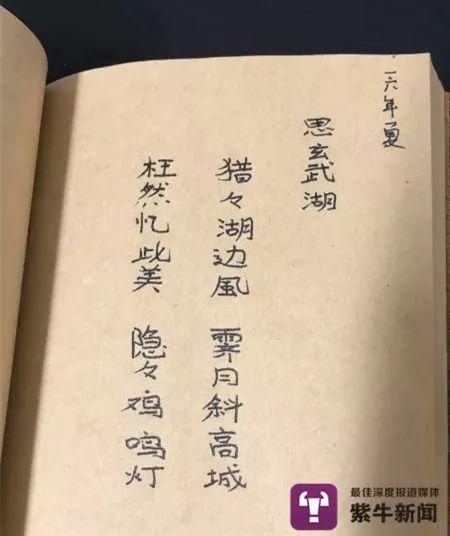 一六年夏
思玄武湖
猎々湖边風 霁月斜高城
枉然忆此美 隐々鸡鸣灯
最佳深度报道媒体
紫牛新闻